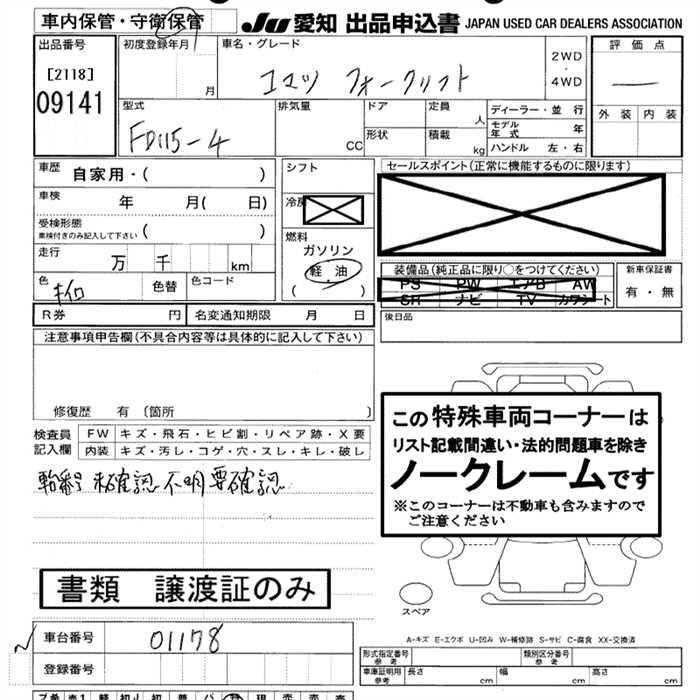 車内保管・守衛保管
JU 愛知 出品申込書 JAPAN USED CAR DEALERS ASSOCIATION
出品番号
[2118]
09141
初度登録年月
月
車名・グレード
コマツ フォークリフト
2WD
・
4WD
評価点
外装 内装
型式
FD115-4
排気量
CC
ドア
形状
定員
人
積載
kg
ディーラー・並行
モデル年式 年
ハンドル 左・右
車歴 自家用・( )
車検 年 月( 日)
受検形態
車検付きのみ記入して下さい ( )
走行 万 千 km
色
色替
色コード
シフト
冷房
燃料
ガソリン
軽油
( )
セールスポイント(正常に機能するものに限ります)
装備品(純正品に限り○をつけてください)
PS PW エアB AW
SR ナビ TV カワシート
新車保証書
有・無
R券 円
名変通知期限 月 日
後日品
注意事項申告欄(不具合内容等は具体的に記入して下さい)
修復歴 有 〔箇所 〕
検査員記入欄
FW キズ・飛石・ヒビ割・リペア跡・X要
内装 キズ・汚し・コゲ・穴・スレ・キレ・破し
輪番号 未確認 不明 要確認
この特殊車両コーナーは
リスト記載間違い・法的問題車を除き
ノークレームです
※このコーナーは不動車も含みますので
ご注意ください
書類 譲渡証のみ
スペア
車台番号 01178
登録番号
A-キズ E-エクボ U-凹み W-補修跡 S-サビ C-腐食 XX-交換済
形式指定番号
参考
類別区分番号
参考
車庫証明用
参考
長さ cm
幅 cm
高さ cm